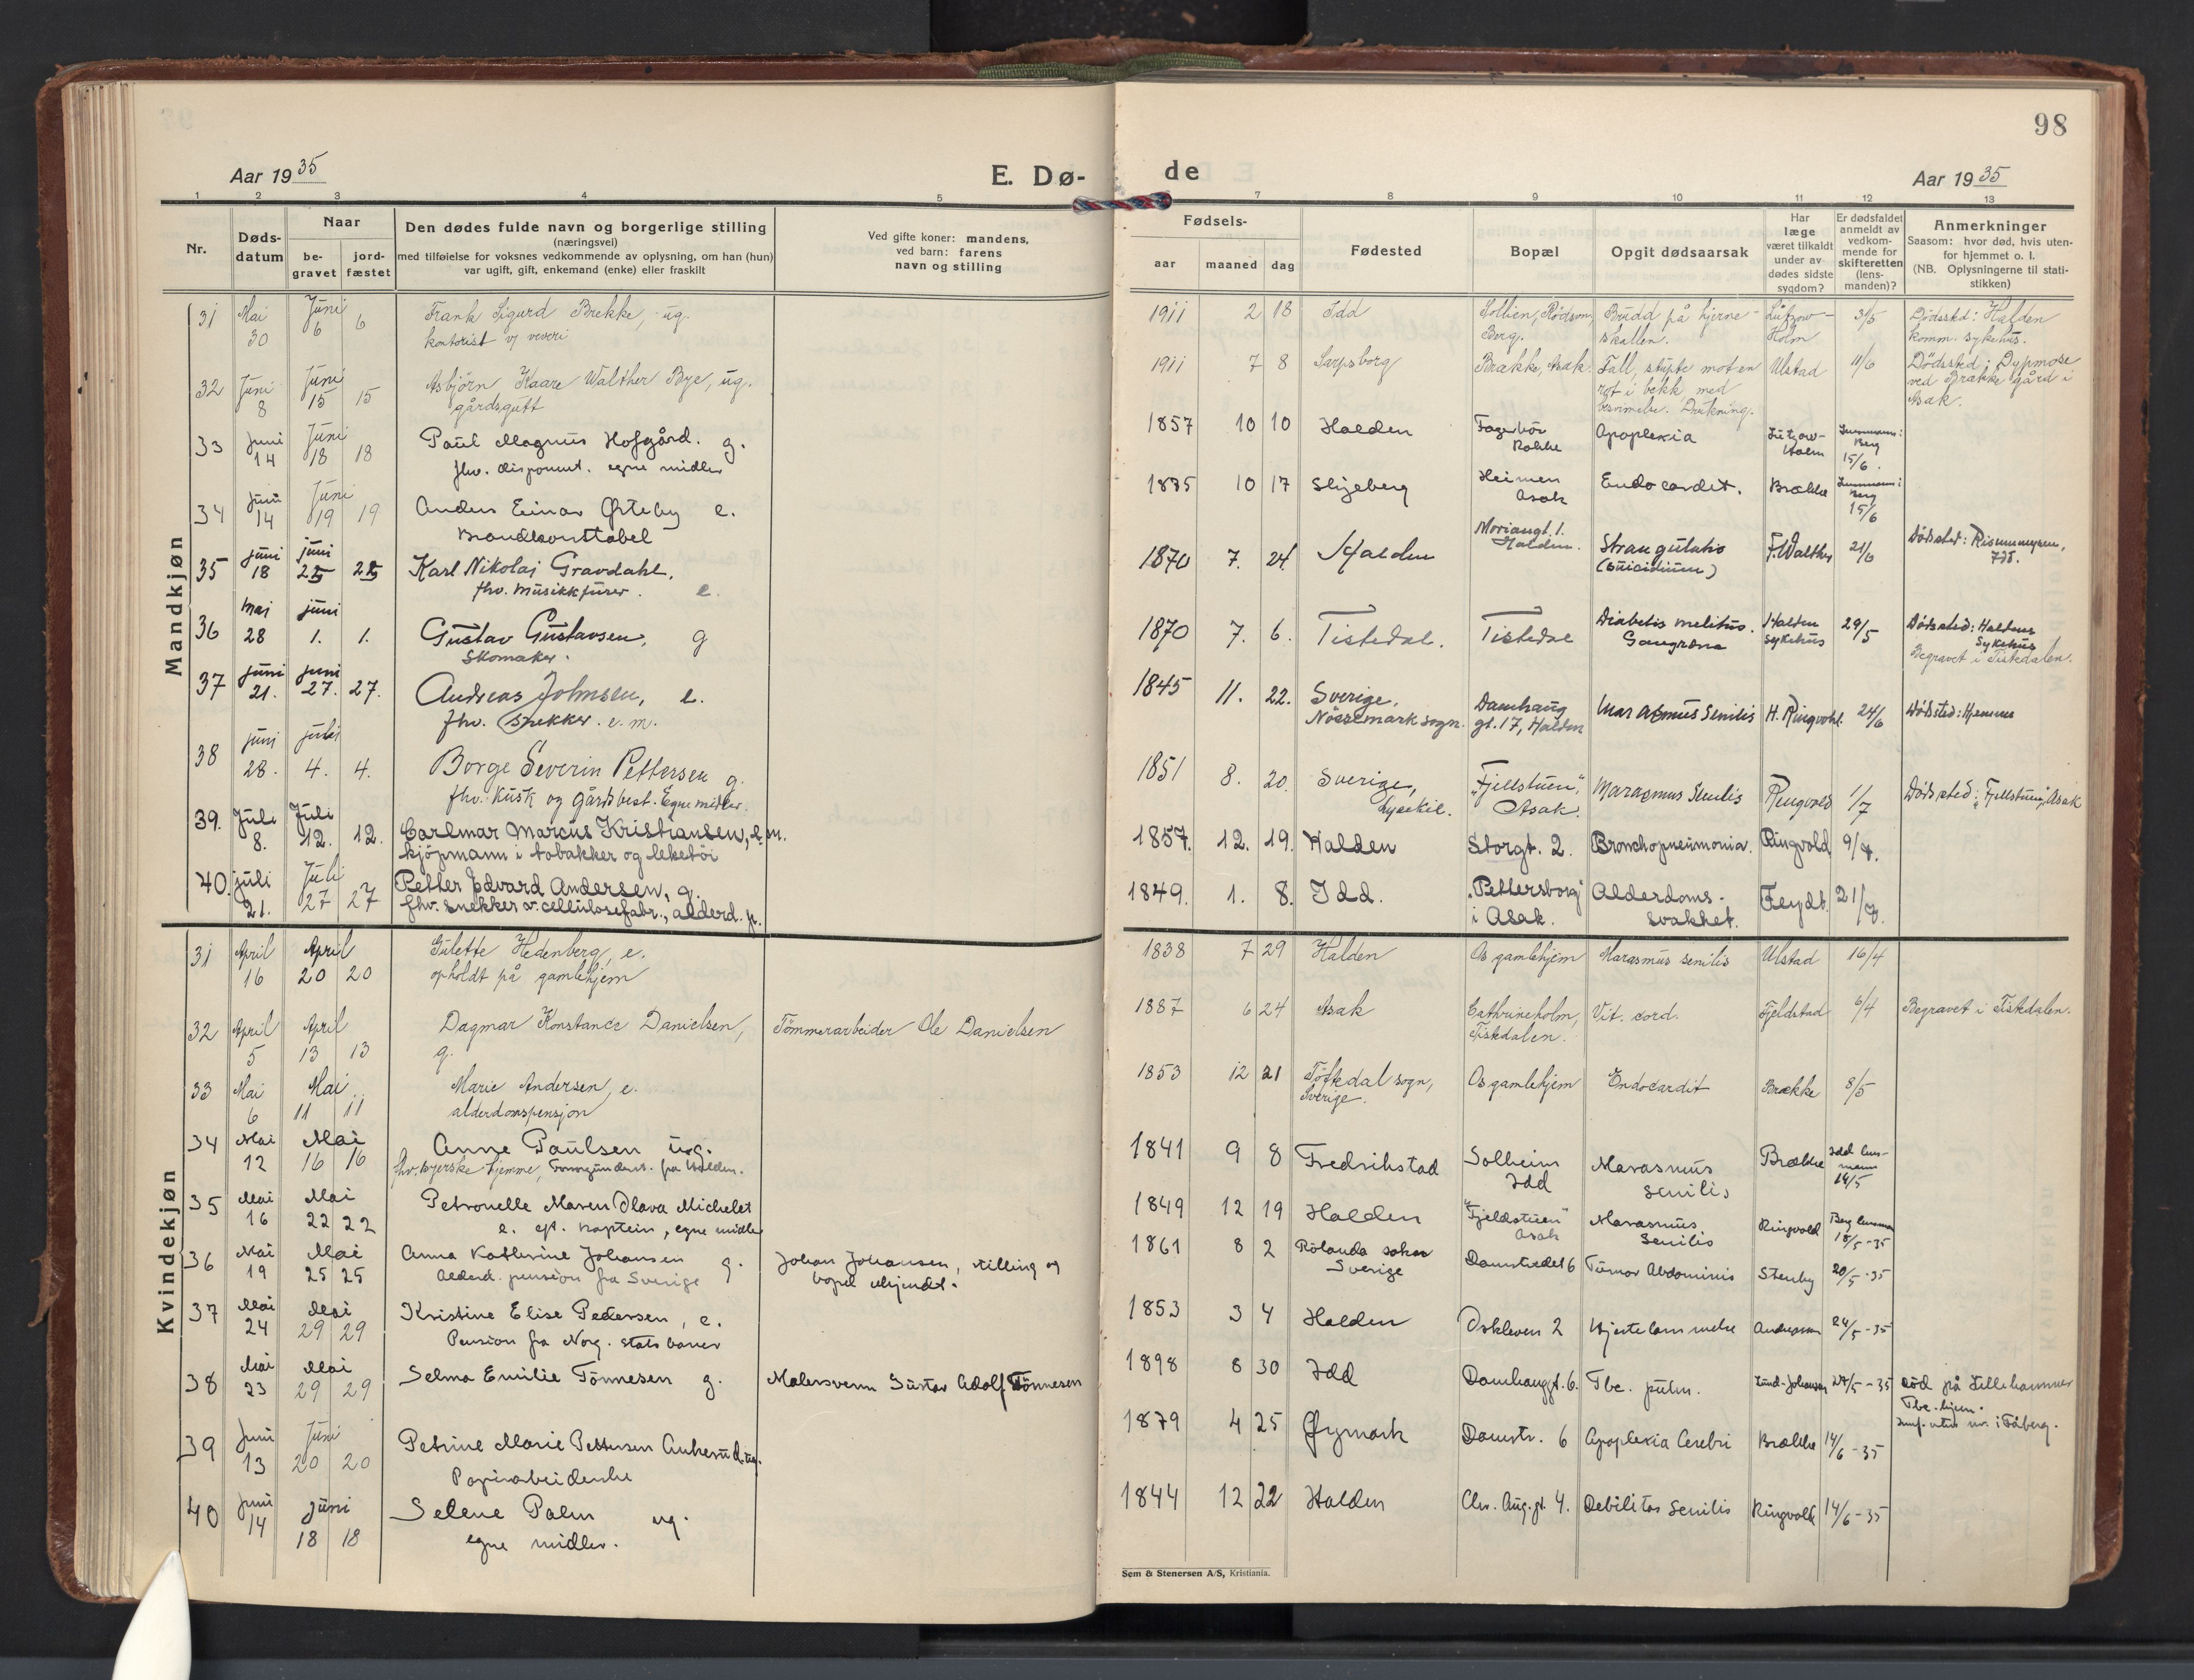 98
Aar 1935
E. Dø-
de
Aar 1935
1 2 3 4 5 7 8 9 10 11 12 13
Nr.
Døds-
datum
Naar
be-
gravet
jord-
fæstet
Den dødes fulde navn og borgerlige stilling
(næringsvei)
med tilføielse for voksnes vedkommende av oplysning, om han (hun)
var ugift, gift, enkemand (enke) eller fraskilt
Ved gifte koner: mandens,
ved barn: farens
navn og stilling
Fødsels-
aar maaned dag
Fødested
Bopæl
Opgit dødsaarsak
Har
læge
været tilkaldt
under av-
dødes sidste
sygdom?
Er dødsfaldet
anmeldt av
vedkom-
mende for
skifteretten
(lens-
manden)?
Anmerkninger
Saasom: hvor død, hvis uten-
for hjemmet o. l.
(NB. Oplysningerne til stati-
stikken)
Mandkjøn
31 Mai 30 Juni 6 6 Frank Sigurd Brekke, ug.
kontorist v/ veveri
1911 2 18 Idd
Berg.
Brudd på hjerne-
skallen.
Lützow-
Holm
3/5
Dödssted: Halden
komm. sykehus.
32 Juni 8 Juni 15 15 Asbjörn Kaare Walther Bye, ug.
gårdsgutt
1911 7 8 Sarpsborg
Brække, Asak.
Fall, stupte mot en
rot i bekk med
besvimelse. Drukning.
Ulstad
11/6
Dödssted: Dypmose
ved Brække gård i
Asak.
33 Juni 14 Juni 18 18 Paul Magnus Hofgård. g.
fhv. disponent. egne midler
1857 10 10 Halden
Rokke
Apoplexia
Lützow-
Holm
Berg
15/6.
34 Juni 14 Juni 19 19 Anders Einar Østeby e.
Brandkonstabel
1875 10 17 Skjeberg
Heimen
Asak
Endocardit.
Brække
Berg
15/6
35 juni 18 juni 25 25 Karl Nikolai Gravdahl,
fhv. musikkfører. e.
1870 7. 24. Halden
Moriangt. 1.
Halden.
Strangulatio
(Suicidium)
F. Walther
21/6
Dödssted:
Idd.
36 mai 28 juni 1. 1. Gustav Gustavsen, g
Skomaker.
1870 7. 6. Tistedal.
Tistedal
Diabetis melitus.
Gangræna
Halden
sykehus
29/5
Dödssted: Haldens
Sykehus
Begravet i Tistedalen.
37 juni 21. juni 27. 27. Andreas Johnsen, e.
fhv. Snekker. e. m.
1845 11. 22. Sverige,
Nössemark sogn.
Damhaug
gt. 17, Halden
Marasmus Senilis
H. Ringvold.
24/6
Dödssted: Hjemme
38 juni 28. juli 4. 4. Borge Severin Pettersen g.
fhv. Kusk og gårdbest. Egne midler.
1851 8. 20. Sverige,
Lysekil.
"Fjellstuen",
Asak.
Marasmus Senilis
Ringvold
1/7
Dödssted: "Fjellstuen", Asak
39. Juli 8. Juli 12. 12. Carlmar Marcus Kristiansen, e. m.
kjöpmann i tobakker og leketöi
1857. 12. 19. Halden
Storgt. 2.
Bronchopneumonia.
Ringvold
9/7.
40. juli 21. Juli 27 27 Petter Edvard Andersen, g.
fhv. snekker v. cellulosefabr., alderd. p.
1849. 1. 8. Idd.
"Pettersborg"
i Asak.
Alderdoms-
svakhet.
Feydt.
21/7.
Kvindekjøn
31 April 16 April 20 20 Gulette Hedenberg, e.
opholdt på gamlehjem
1838 7 29 Halden
Os gamlehjem
Marasmus senilis
Ulstad
16/4
32 April 5 April 13 13 Dagmar Konstance Danielsen,
g.
Tömmerarbeider Ole Danielsen
1887 6 24 Asak
Cathrineholm,
Tistedalen.
Vit. cord.
Fjeldstad
6/4
Begravet i Tistedalen.
33 Mai 6 Mai 11 11 Marie Andersen, e.
alderdomspensjon
1853 12 21 Töftedal sogn,
Sverige.
Os gamlehjem
Endocardit
Brække
8/5
34 Mai 12 Mai 16 16 Anne Paulsen ug.
1841 9 8 Fredrikstad
Solheim
Idd
Marasmus
senilis
Brække
Idd lens-
mann
14/5
35 Mai 16 Mai 22 22 Petronelle Maren Olava Michelet
e. eft. kaptein, egne midler
1849 12 19 Halden
"Fjeldstuen"
Asak
Marasmus
Senilis
Ringvold
18/5-35
36 Mai 19 Mai 25 25 Anna Kathrine Johansen g.
Alderd. pension fra Sverige
Johan Johansen, stilling og
bopel ukjendt.
1861 8 2 Rölanda soken
Sverige
Damstredet 6
Tumor Abdominis
Stenby
20/5-35
37 Mai 24 Mai 29 29 Kristine Elise Pedersen, e.
Pension fra Norg. Stats baner
1853 3 4 Halden
Oskleven 2
Hjertelammelse
Andersson
24/5-35
38 Mai 23 Mai 29 29 Selma Emilie Tönnesen g.
Malersvenn Gustav Adolf Tönnesen
1898 8 30 Idd
Damhauggt. 6.
Tbc. pulm.
Lund-Johansen
27/5-35
död på Lillehammer
Tbc. hjem.
39 Juni 13 Juni 20 20 Petrine Marie Pettersen Ankerud. ug.
Papirarbeiderske
1879 4 25 Øymark
Damstr. 6
Apoplexia Cerebri
Brække
14/6-35
40 Juni 14 juni 18 18 Selene Palm ug.
egne midler.
1844 12 22 Halden
Chr. Aug. gt. 4.
Debilitas Senilis
Ringvold
14/6-35
Sem & Stenersen A/S, Kristiania.